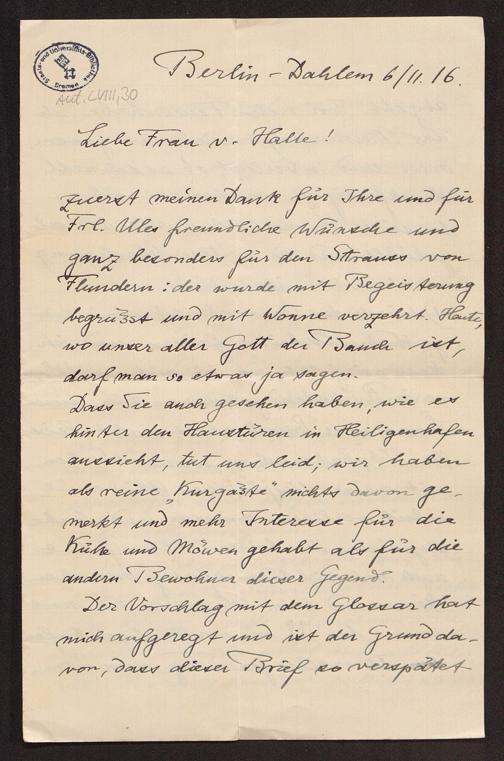 Staats- und Universitäts-Bibliothek
Bremen
Aut. LVIII,30
Berlin-Dahlem 6/11. 16.
Liebe Frau v. Halle!
zuerst meinen Dank für Ihre und für
Frl. Ules freundliche Wünsche und
ganz besonders für den Strauss von
Flundern: der wurde mit Begeisterung
begrüsst und mit Wonne verzehrt. Heute,
wo unser aller Gott der Bauch ist,
darf man so etwas ja sagen.
Dass Sie auch gesehen haben, wie es
hinter den Haustüren in Heiligenhafen
aussieht, tut uns leid; wir haben
als reine „Kurgäste" nichts davon ge-
merkt und mehr Interesse für die
Kühe und Möwen gehabt als für die
andern Bewohner dieser Gegend.
Der Vorschlag mit dem Glossar hat
mich aufgeregt und ist der Grund da-
von, dass dieser Brief so verspätet